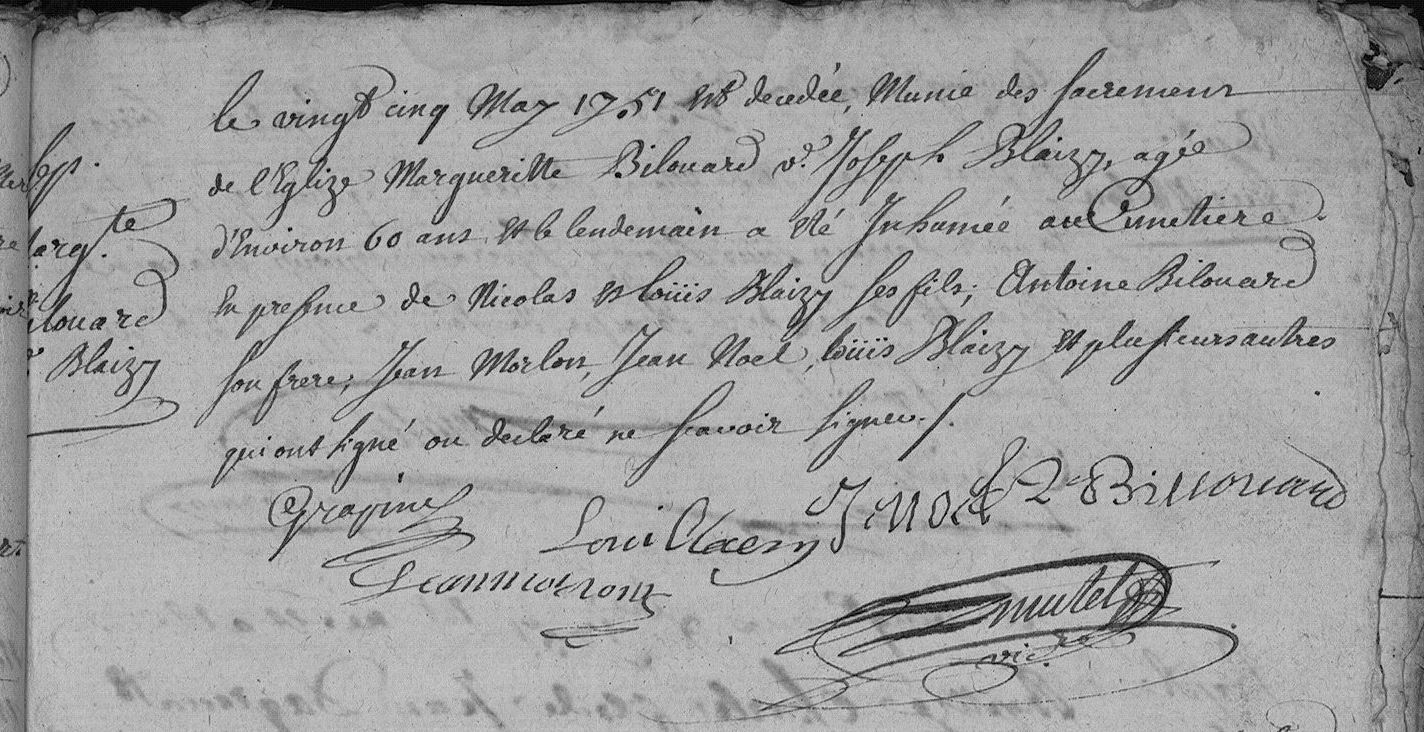 Sep.
Marg.te
Bilouard
v.e Blaizy
le vingt cinq May 1751 est decedée, Munie des sacremens
de l'Eglize Margueritte Bilouard v.e Joseph Blaizy, agée
d'Environ 60 ans et le lendemain a été Inhumée au Cimetiere
En presence de Nicolas et loüis Blaizy ses fils; Antoine Bilouard
son frere; Jean Morlon, Jean Noel, loüis Blaizy et plusieurs autres
qui ont signé ou declaré ne scavoir signer ./.
Grapine
Loui Blaezy
J Noel
Billouard
Jean morlon
mutel
vic.re